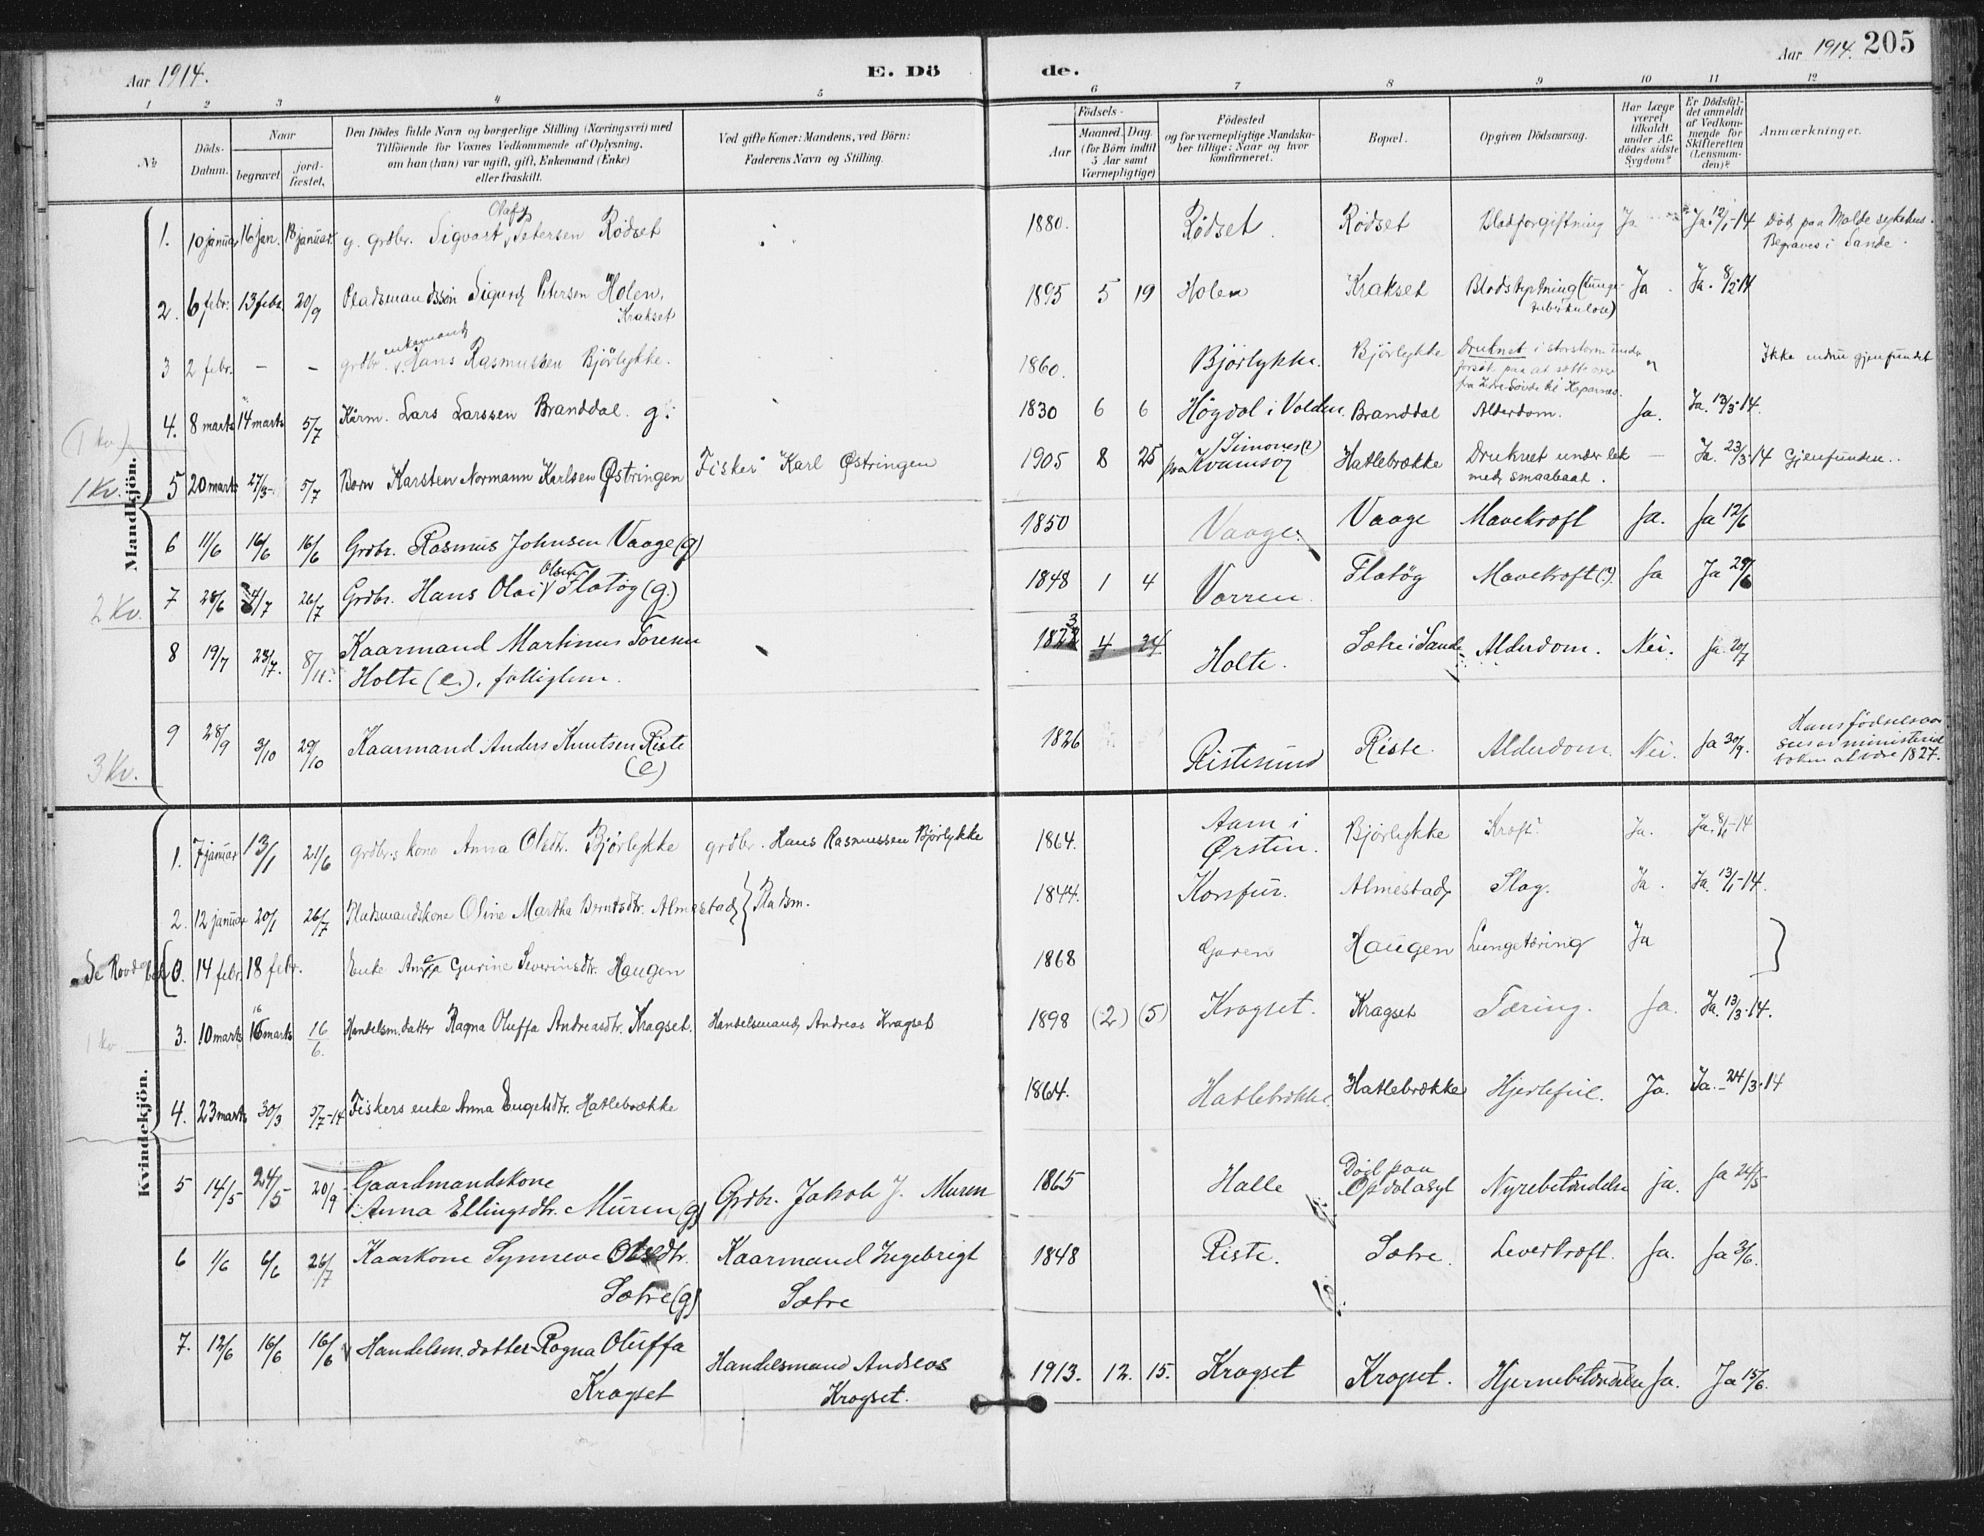 Aar 1914. E. Dö
de. Aar 1914. 205
1 2 3 4 5 6 7 8 9 10 11 12
№ Döds-Datum. Naar begravet jordfæstet. Den Dödes fulde Navn og borgerlige Stilling (Næringsvei) med Tilföiende for Voxnes Vedkommende af Oplysning, om han (hun) var ugift, gift, Enkemand (Enke) eller fraskilt. Ved gifte Koner: Mandens, ved Börn: Faderens Navn og Stilling. Födsels- Aar Maaned. Dag. (for Börn indtil 5 Aar samt Værnepligtige) Födested og for værnepligtige Mandskaber tillige: Naar og hvor konfirmeret. Bopæl. Opgiven Dödsaarsag. Har Læge været tilkaldt under Afdödes sidste Sygdom? Er Dödsfaldet anmeldt af Vedkommende for Skifteretten (Lensmanden)? Anmærkninger.
Mandkjön.
1. 10 januar 16 jan. 18 januar. g. grdbr. Sigvart Olaf Petersen Rödset 1880. Rödset. Rödset Blodforgiftning Ja Ja. 12/1-14 Död paa Molde sykehus. Begraves i Sande.
2. 6 febr. 13 febr. 20/9 Pladsmandssön Sigurd Petersen Holen, Krakset 1895 5 19 Holen Krakset Blodstyrtning (lungetuberkulose) Ja. Ja. 8/2-14
3 2 febr. – – grdbr. enkemand Hans Rasmussen Bjørlykke. 1860. Bjørlykke. Bjørlykke Druknet i storstorm under forsök paa at sætte over fra Ikke endnu gjenfundet
(1 kv.)
4. 8 marts 14 marts 5/7 Kårm. Lars Larssen Branddal. g. 1830 6 6 Högdal i Volden Branddal Alderdom. Ja. Ja. 13/3-14.
1 Kv.
5 20 marts 27/3- 5/7 Barn Karsten Normann Karlsen Østringen Fisker Karl Østringen 1905 8 25 paa Kvamsöy Hatlebrække Druknet under lek med smaabaat. – Ja. 23/3-14 Gjenfunden.
6 11/6 16/6 16/6 Grdbr. Rasmus Johnsen Vaage (g) 1850 Vaage. Vaage Mavekræft Ja. Ja 12/6
2 Kv.
7 28/6 4/7 26/7 Grdbr. Hans Olai Olsen Flatøy (g.) 1848 1 4 Vorren. Flatöy Mavekræft (?). Ja Ja 29/6
8 19/7 23/7. 8/11. Kaarmand Martinus Toresen Holte (e.), fattiglem. 1823 4 24 Holte. Sætre i Sande Alderdom. Nei. Ja. 20/7
3 Kv.
9 28/9 3/10 29/10 Kaarmand Anders Knutsen Riste (e) 1826 Ristesund Riste. Alderdom. Nei. Ja 30/9. Hans födselsaar sees av ministerialboken at være 1827.
Kvindekjön.
1. 7 januar 13/1 21/6 grdbr.s kone Anna Olsdtr. Bjørlykke grdbr. Hans Rasmussen Bjørlykke 1864. Aam i Ørsten. Bjørlykke Kræft. Ja. Ja. 8/1-14
2. 12 januar 20/1 26/7 Pladsmandskone Oline Martha Berntsdtr. Almestad Pladsm. 1844. Korsfur. Almestad Slag. Ja. Ja. 13/1-14.
Se Rovde bok 0. 14 febr. 18 febr. Enke Anna Gurine Severinsdtr. Haugen 1868 Garen Haugen Lungetæring Ja
1 kv.
3. 10 marts 16 marts 16/6. Handelsm. datter Ragna Oluffa Andreasdtr. Kragset. Handelsmand Andreas Kragset 1898 (2) (5) Kragset. Kragset Tæring. Ja. Ja. 13/3-14.
4. 23 marts 30/3 5/7-14 Fiskers enke Anna Engelsdtr. Hatlebrække 1864. Hatlebrække. Hatlebrække Hjertefeil. Ja. Ja. -24/3-14
5 14/5 24/5 20/9 Gaardmandskone Anna Ellingsdtr. Muren (g) Grdbr. Jakob J. Muren 1865 Halle Död paa Opdöl asyl Nyrebetændelse ja. Ja 24/5
6 1/6 6/6 26/7 Kaarkone Synneve Olsdtr. Sætre (g) Kaarmand Ingebrigt Sætre 1848 Riste. Sætre. Leverkræft. Ja. Ja 3/6.
7. 12/6 16/6 16/6 Handelsm. datter Ragna Oluffa Kragset Handelsmand Andreas Kragset. 1913. 12. 15. Kragset Kragset. Hjernebetændelse Ja. Ja 15/6.